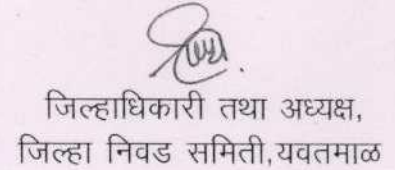 जिल्हाधिकारी तथा अध्यक्ष,
जिल्हा निवड समिती,यवतमाळ